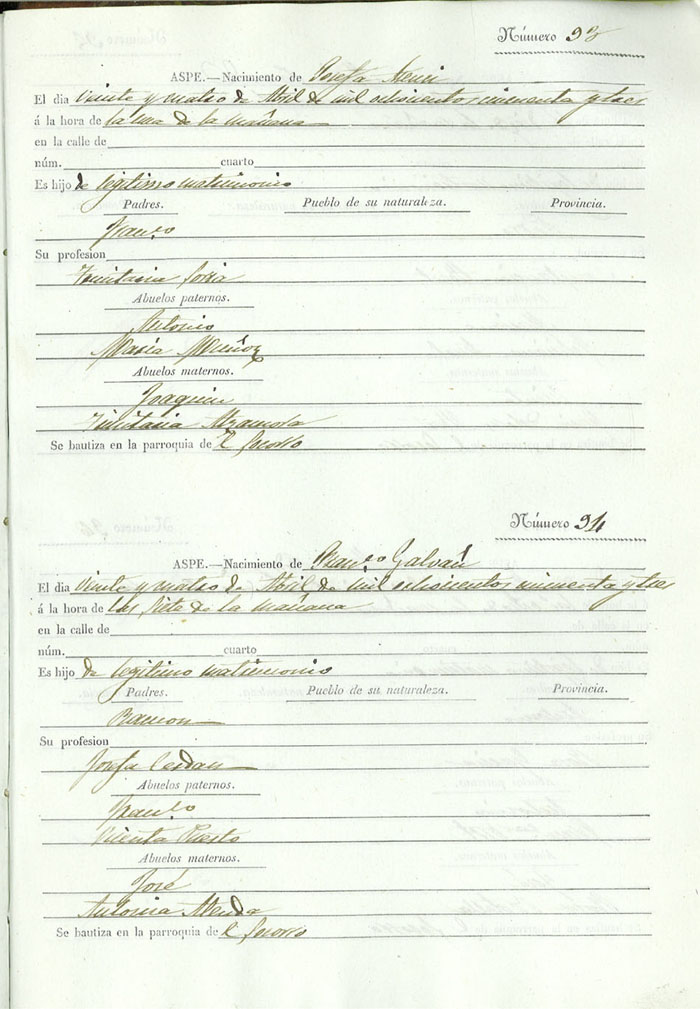 Número 93
ASPE.—Nacimiento de Josefa
El dia Veinte y cuatro de Abril de mil ochocientos cincuenta y tres
á la hora de la una de la mañana
en la calle de
núm. cuarto
Es hijo de legitimo matrimonio
Padres. Pueblo de su naturaleza. Provincia.
Franco
Su profesion
Trinitaria Soria
Abuelos paternos.
Antonio
Maria Muñoz
Abuelos maternos.
Joaquin
Trinitaria Alzamora
Se bautiza en la parroquia de el Socorro
Número 94
ASPE.—Nacimiento de Franco Galvañ
El dia Veinte y cuatro de Abril de mil ochocientos cincuenta y tres
á la hora de las siete de la mañana
en la calle de
núm. cuarto
Es hijo de legitimo matrimonio
Padres. Pueblo de su naturaleza. Provincia.
Ramon
Su profesion
Josefa Cerdan
Abuelos paternos.
Franco
Vicenta Puerto
Abuelos maternos.
José
Antonia
Se bautiza en la parroquia de el Socorro